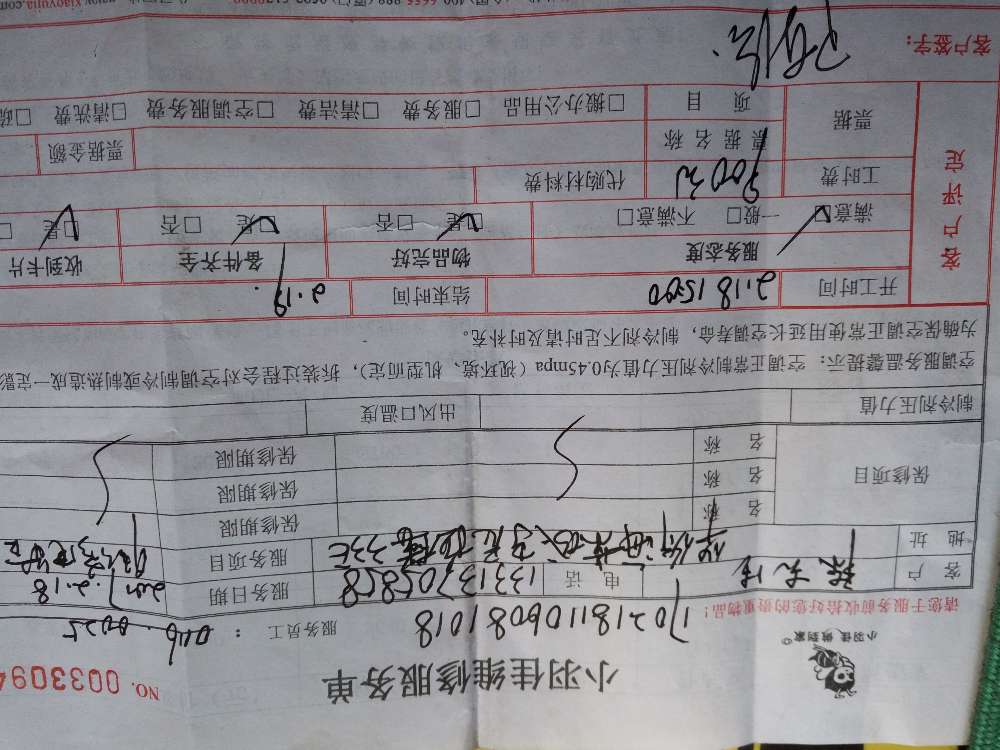 小羽佳维修服务单
NO. 0033094
小羽佳 做到家
170218110608 1018
服务员工： 0116. 0025
请您于服务前收拾好您的贵重物品！
客 户
电 话 13313705858
服务日期 2017.2.18
地 址
服务项目
保修项目
名 称 保修期限
名 称 保修期限
名 称 保修期限
制冷剂压力值 出风口温度
空调服务温馨提示：空调正常制冷剂压力值为0.45mpa（视环境、机型而定），拆装过程会对空调制冷或制热造成一定影
为确保空调正常使用延长空调寿命，制冷剂不足时请及时补充。
客户评定
开工时间 2.18 15:00 结束时间 2.18
服务态度 物品完好 备件齐全 收到卡片
满意□ 一般□ 不满意□ □是 □否 □是 □否 □是 □
工时费 800元 代购材料费
票据 票据名称 票据金额
项 目 □搬办公用品 □服务费 □清洁费 □空调服务费 □清洗费 □疏
客户签字：